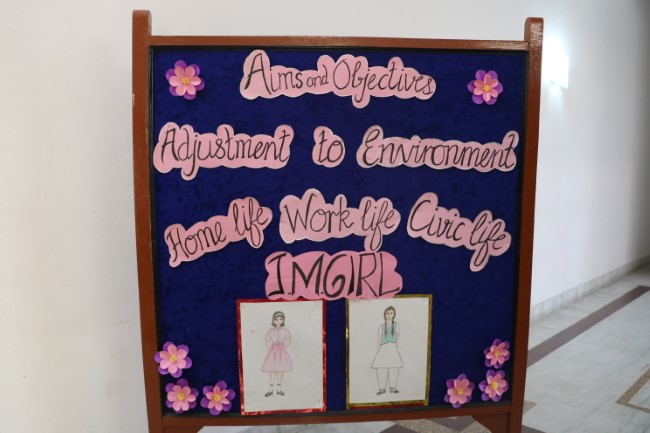 Aims and Objectives
Adjustment to Environment
Home life Work life Civic life
I.M.GIRL